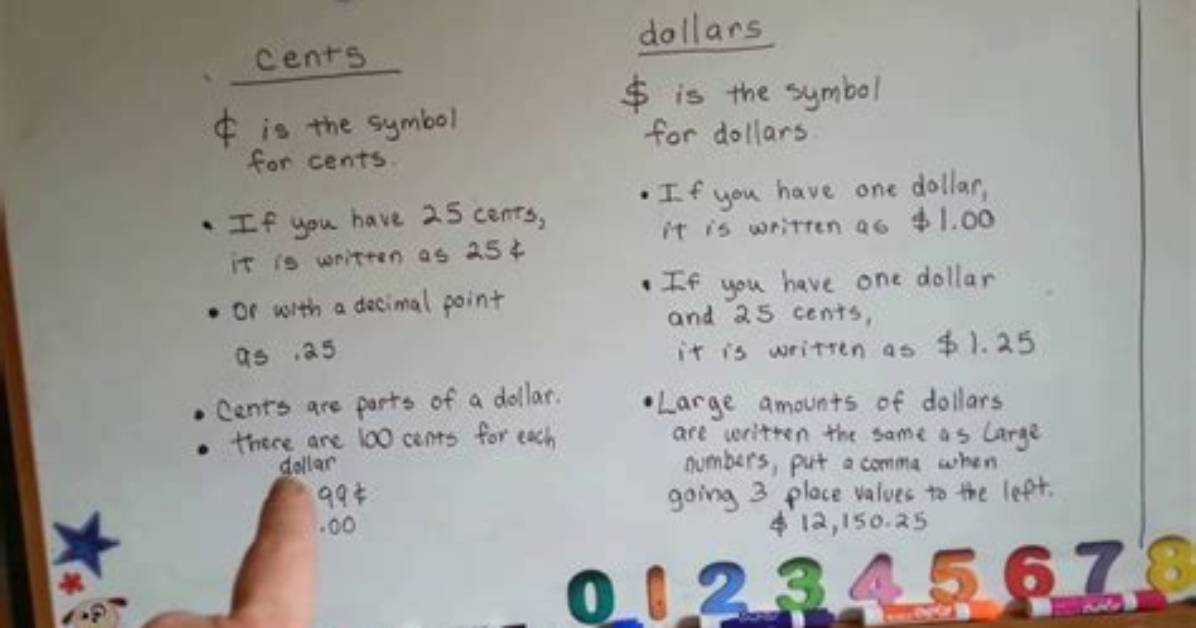 cents
¢ is the symbol
for cents.
• If you have 25 cents,
it is written as 25¢
• Or with a decimal point
as .25
• Cents are parts of a dollar.
• there are 100 cents for each
dollar
99¢
.00
dollars
$ is the symbol
for dollars.
• If you have one dollar,
it is written as $1.00
• If you have one dollar
and 25 cents,
it is written as $1.25
• Large amounts of dollars
are written the same as large
numbers, put a comma when
going 3 place values to the left.
$12,150.25
0 1 2 3 4 5 6 7 8